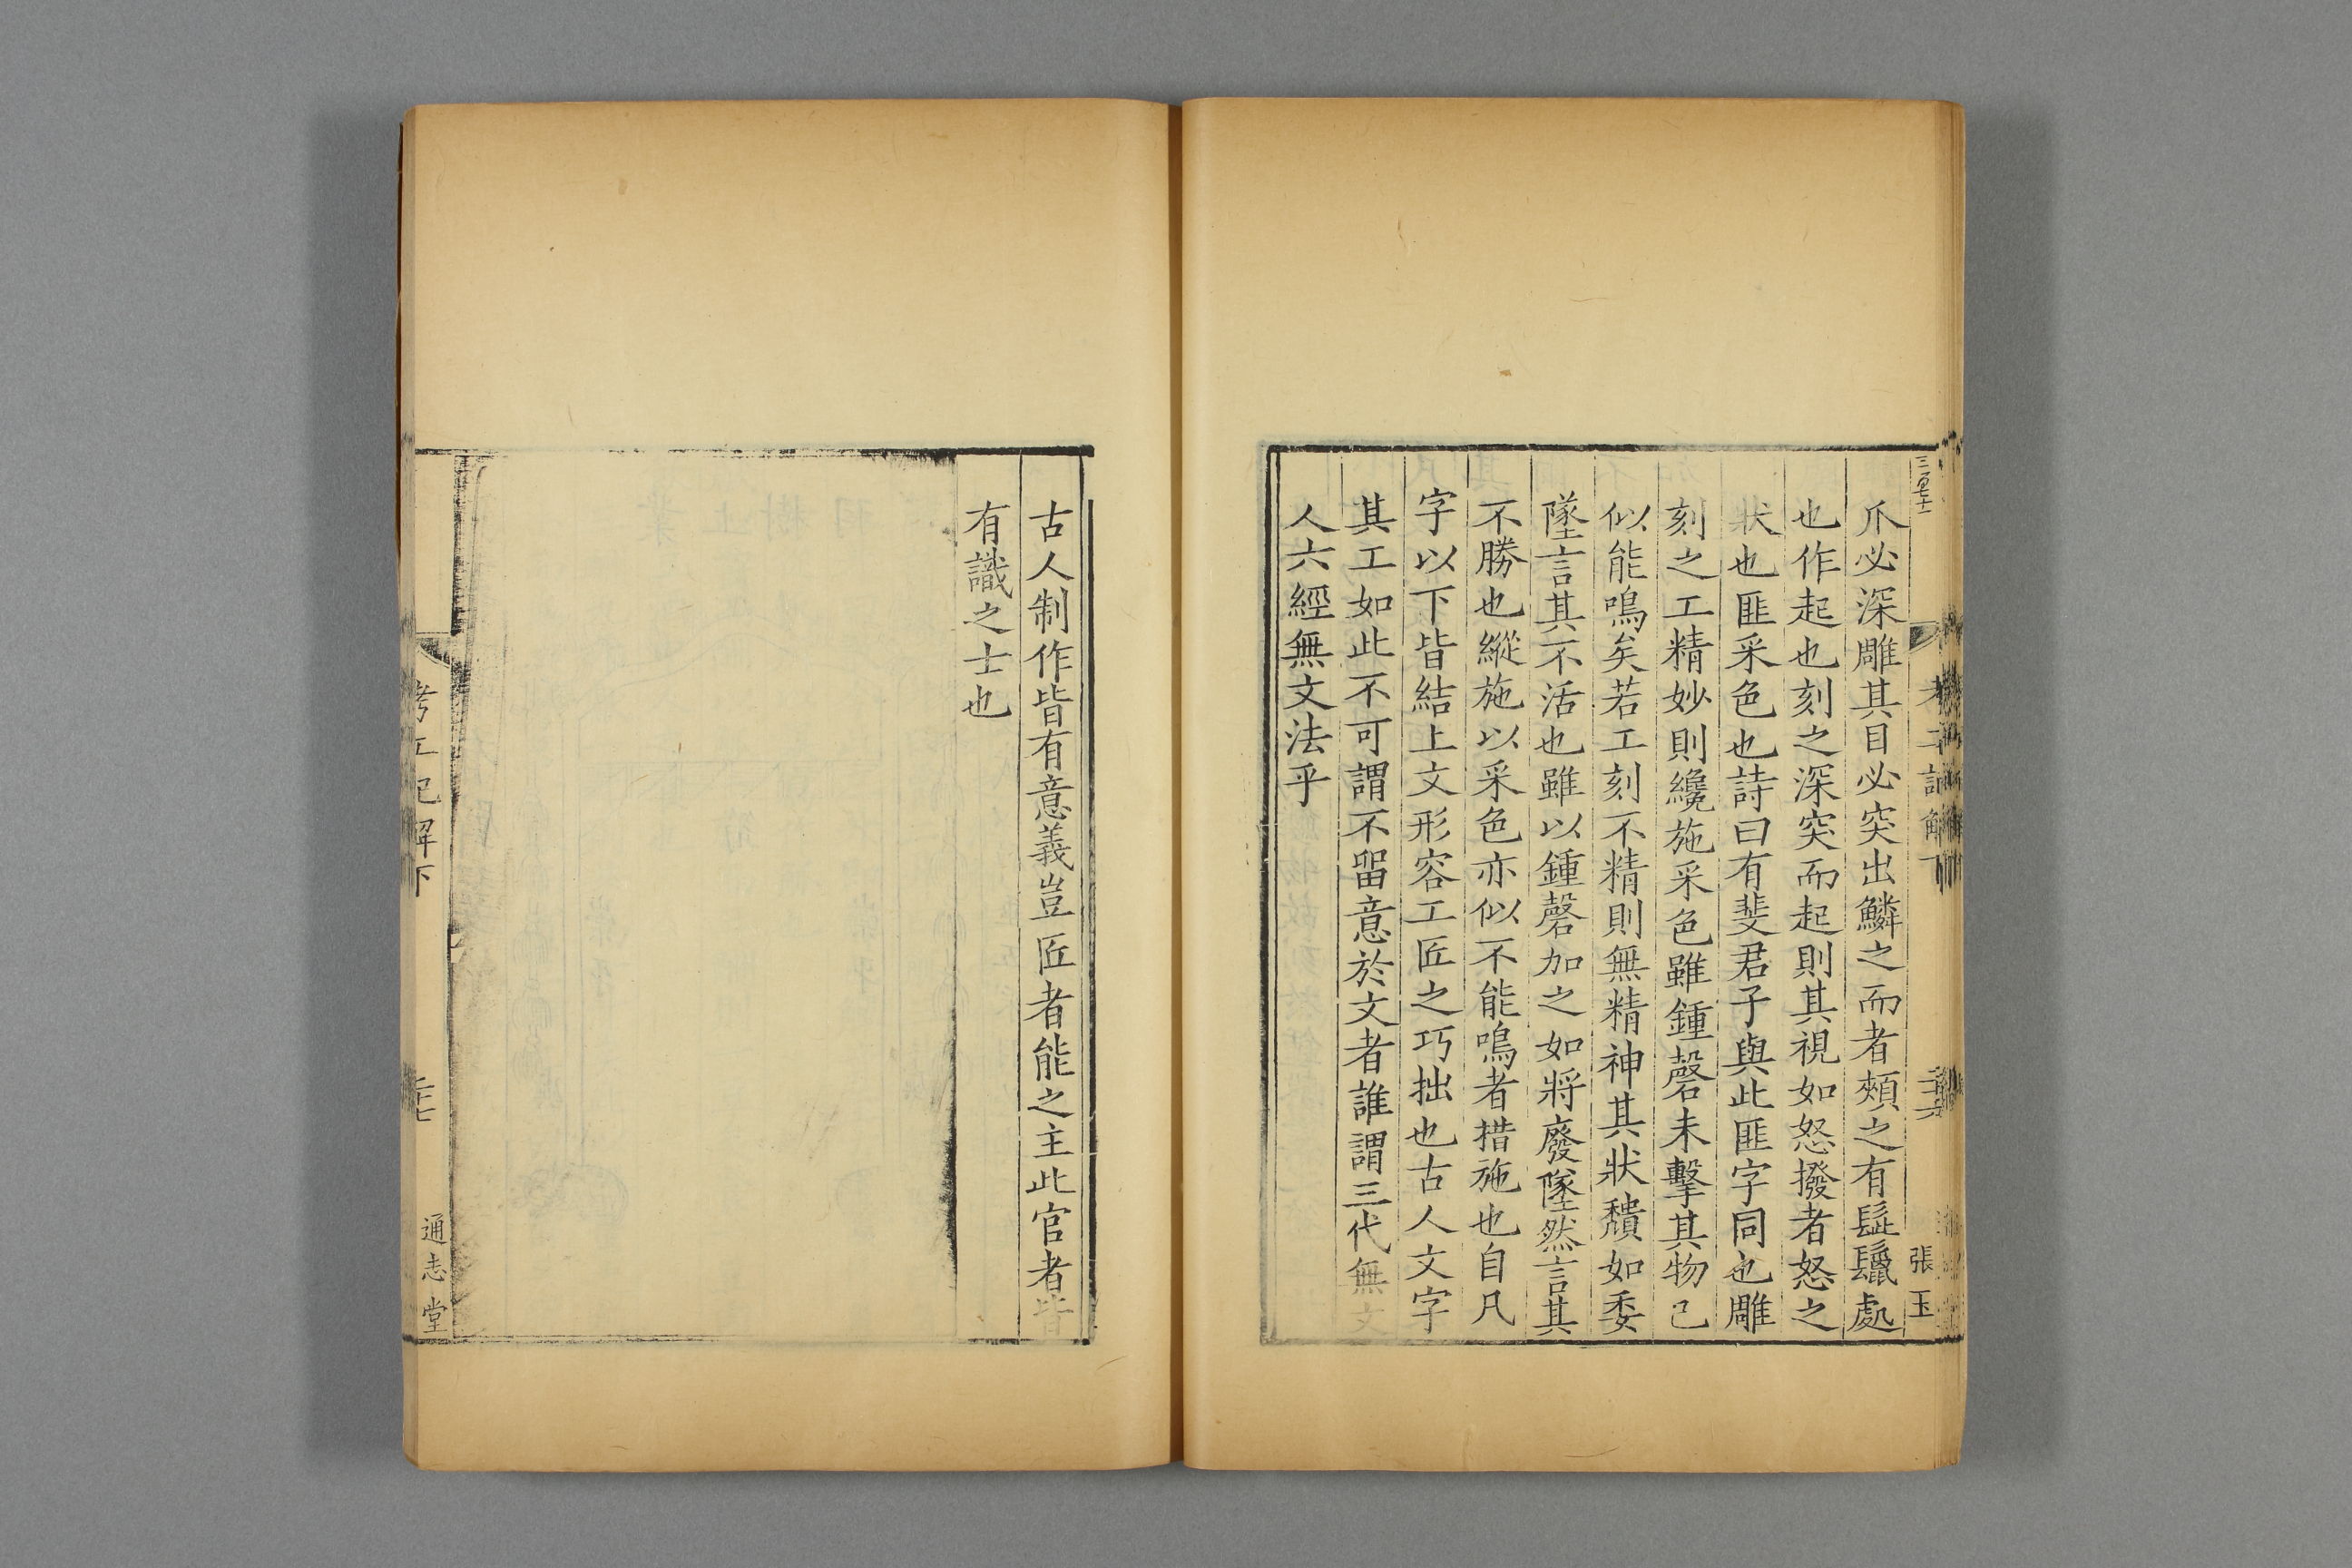 三百七十
張玉
爪必深雕其目必突出鱗之而者頰之有髭鬣處
也作起也刻之深突而起則其視如怒撥者怒之
狀也匪采色也詩曰有斐君子與此匪字同也雕
刻之工精妙則纔施采色雖鍾磬未擊其物已
似能鳴矣若工刻不精則無精神其狀穨如委
墜言其不活也雖以鍾磬加之如將廢墜然言其
不勝也縱施以采色亦似不能鳴者措施也自凡
字以下皆結上文形容工匠之巧拙也古人文字
其工如此不可謂不留意於文者誰謂三代無文
人六經無文法乎
古人制作皆有意義豈匠者能之主此官者皆
有識之士也
考工記解下
二十七
通志堂